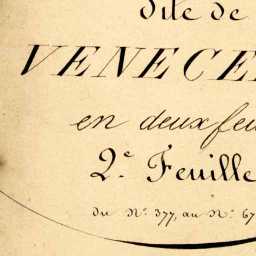 dite de
VENECE
en deux feu
2.e Feuille
du N.o 377, au N.o 67